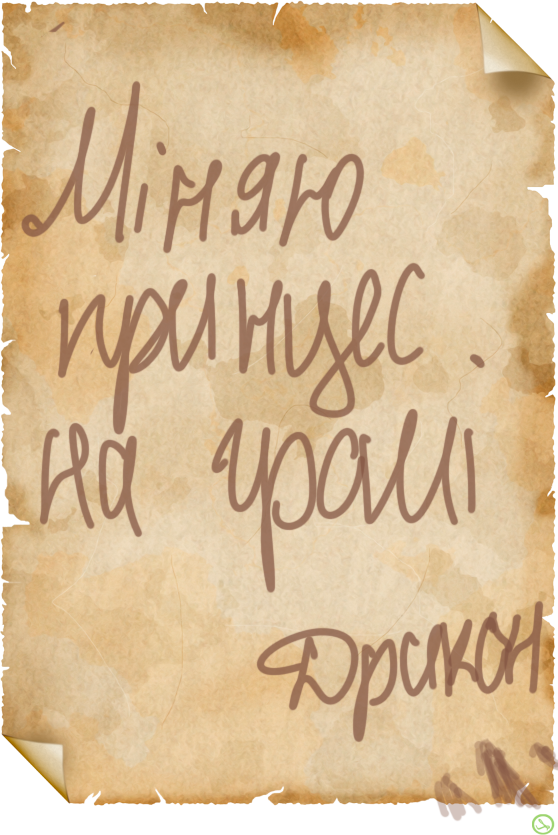 Міняю
принцес.
на гроші
Дракон